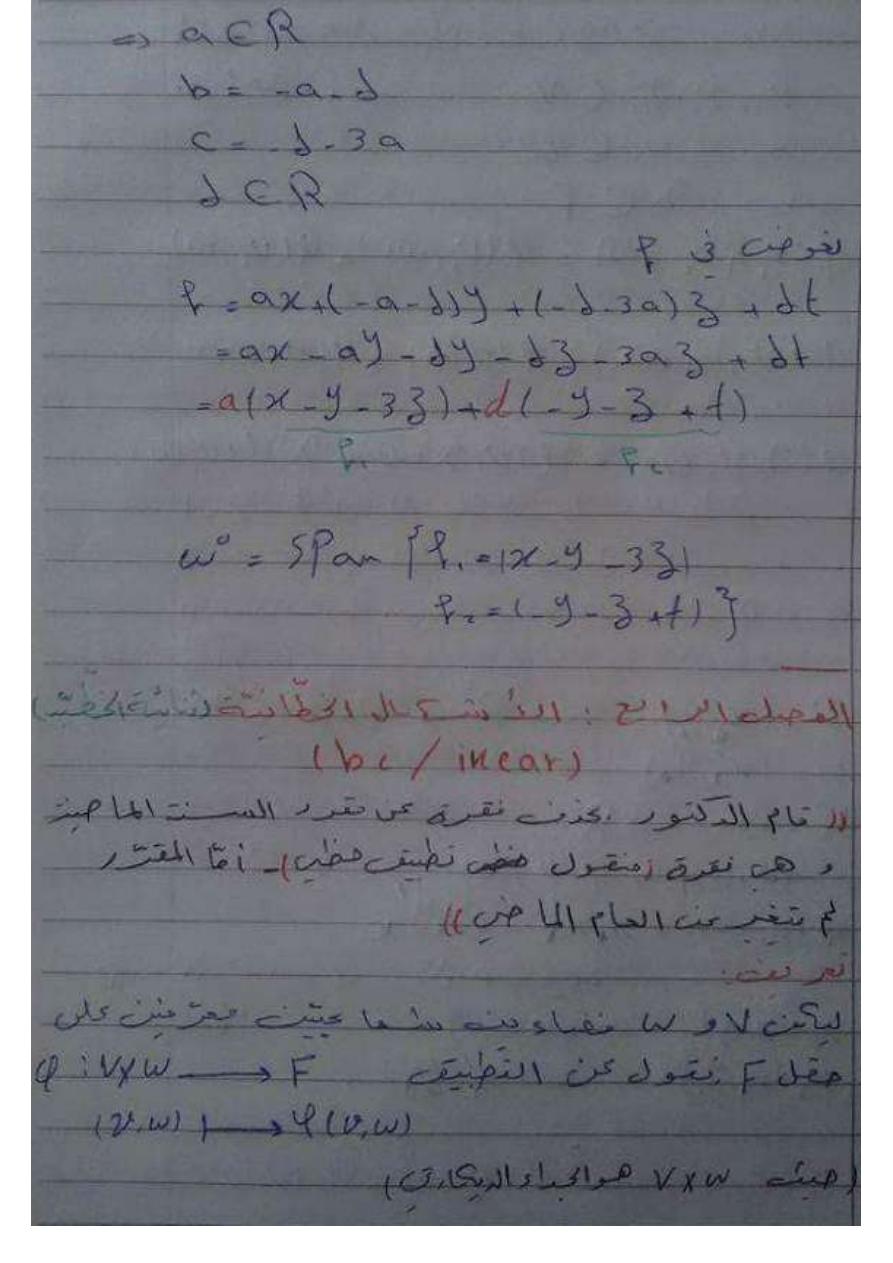 => a ∈ R
b = -a-d
c = -d-3a
d ∈ R
نعوض في f
f = ax+(-a-d)y+(-d-3a)z+dt
=ax-ay-dy-dz-3az+dt
=a(x-y-3z)+d(-y-z+t)
f₁ f₂
w° = span {f₁=(x-y-3z)
f₂=(-y-z+t)}
الفصل الرابع : الأشكال الخطّانيّة (ثنائية الخطيّة)
(bi/inear)
(( قام الدكتور بحذف فقرة عن مقرر السنة الماضية
و هي فقرة (منقول تطبيق خطي)_ أمّا المقرّر
لم يتغير عن العام الماضي ))
تعريف:
ليكن V و W فضاءين شعاعيّين معرّفين على
حقل F نقول عن التطبيق φ : V×W → F
(v,w) ↦ φ(v,w)
(حيث V×W هو الجداء الديكارتي)